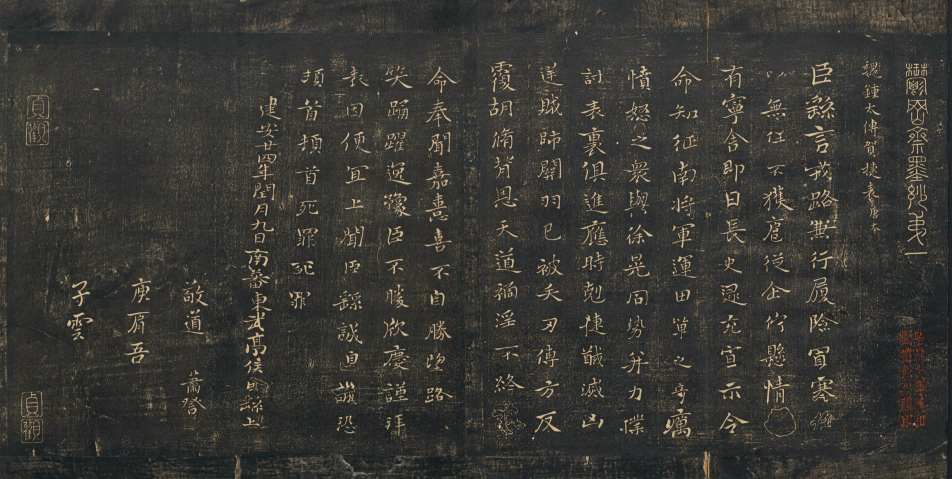 鬱岡齋墨妙弟一
魏鍾太傅賀捷表唐本
臣繇言戎路兼行履險冒寒臣
以無任不獲扈從企佇懸情
有寧舍即日長史逯充宣示令
命知征南將軍運田單之奇厲
憤怒之眾與徐晃同勢并力撲
討表裏俱進應時剋捷馘滅凶
逆賊帥關羽已被矢刃傅方反
覆胡脩背恩天道禍淫不終
命奉聞嘉憙喜不自勝望路
笑踊躍逸豫臣不勝欣慶謹拜
表因便宜上聞臣繇誠惶誠恐
頓首頓首死罪死罪
建安廿四年閏月九日南蕃東武亭侯臣繇上
敬道 蕭登
庾肩吾
子雲
貞觀
貞觀